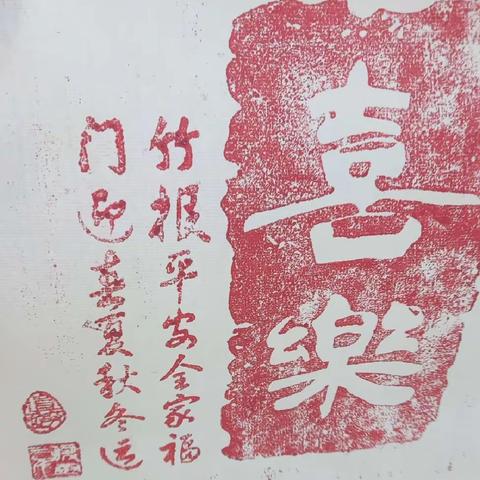 喜樂
竹根平安全家福
门印春夏秋冬运